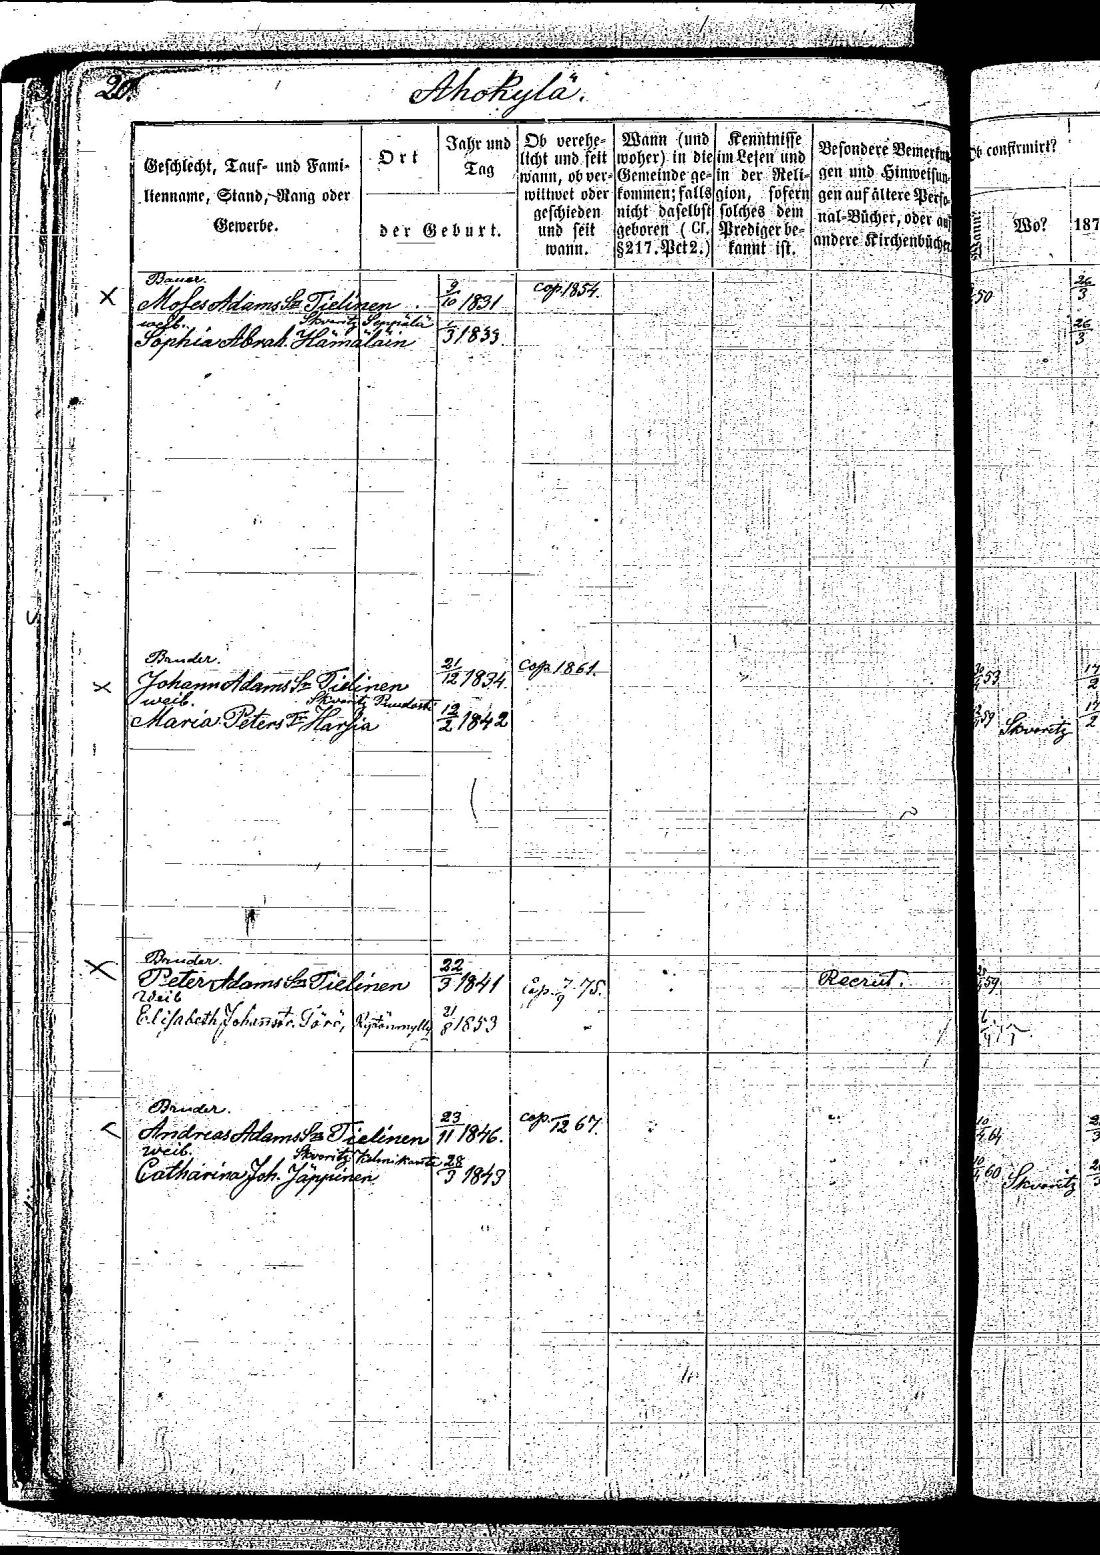 20.
Ahokylä.
Geschlecht, Tauf- und Fami-
lienname, Stand, Rang oder
Gewerbe.
Ort
Jahr und
Tag
der Geburt.
Ob verehe-
licht und seit
wann, ob ver-
wittwet oder
geschieden
und seit
wann.
Wann (und
woher) in die
Gemeinde ge-
kommen; falls
nicht daselbst
geboren (Cf.
§ 217. Pct 2.)
Kenntnisse
im Lesen und
in der Reli-
gion, sofern
solches dem
Prediger be-
kannt ist.
Besondere Bemerkun-
gen und Hinweisun-
gen auf ältere Perso-
nal-Bücher, oder auf
andere Kirchenbücher
Ob confirmirt?
Wann?
Wo?
187
Bauer.
X Moses Adams Sn Tielinen 9/10 1831 cop 1854. 50 26/3
weib. Skvoritz Seppälä
Sophia Abrah. Hämäläin 1833 26/3
Bruder.
X Johann Adams Sn Tielinen 21/12 1834. cop. 1861. 53 17/2
weib. Skvoritz
Maria Peters Tr Harjia 12/2 1842 59 Skvoritz 17/2
Bruder.
X Peter Adams Sn Tielinen 22/3 1841 Cop. 7/9 75. Recrut. 59
Weib
Elisabeth Johannstr. Törö, 21/8 1853
Bruder.
Andreas Adams Sn Tielinen 23/11 1846. cop. /12 67. 64
weib. Skvoritz
Catharina Joh. Jäppinen 28/3 1843 60 Skvoritz